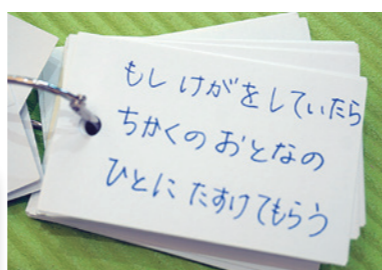 もし けがを していたら
ちかくの おとなの
ひとに たすけてもらう